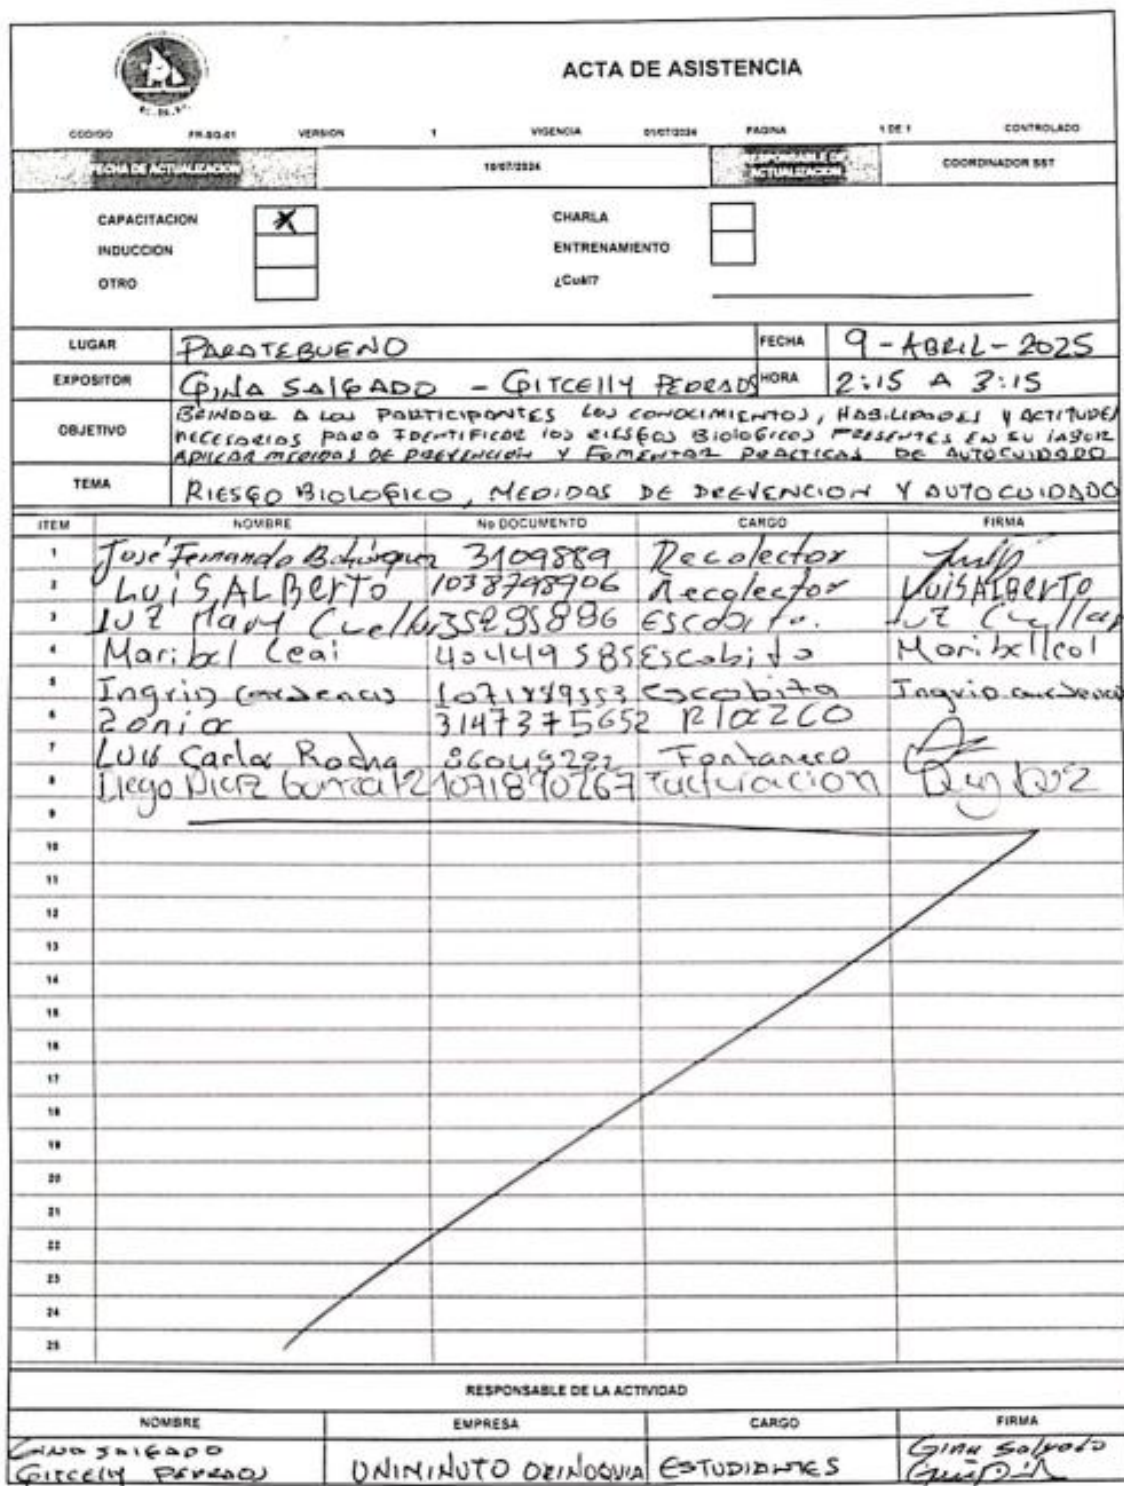 ACTA DE ASISTENCIA
CODIGO FR-SG-01 VERSION 1 VIGENCIA 01/07/2024 PAGINA 1 DE 1 CONTROLADO
FECHA DE ACTUALIZACION 10/07/2024 RESPONSABLE DE ACTUALIZACION COORDINADOR SST
CAPACITACION X CHARLA
INDUCCION ENTRENAMIENTO
OTRO ¿Cuál?
LUGAR PARATEBUENO FECHA 9-ABRIL-2025
EXPOSITOR GINA SALGADO - GITCELLY PEDRAOS HORA 2:15 A 3:15
OBJETIVO BRINDAR A LOS PARTICIPANTES LOS CONOCIMIENTOS, HABILIDADES Y ACTITUDES
NECESARIOS PARA IDENTIFICAR LOS RIESGOS BIOLOGICOS PRESENTES EN SU LABOR
APLICAR MEDIDAS DE PREVENCION Y FOMENTAR PRACTICAS DE AUTOCUIDADO
TEMA RIESGO BIOLOGICO, MEDIDAS DE PREVENCION Y AUTOCUIDADO
ITEM NOMBRE No DOCUMENTO CARGO FIRMA
1 José Fernando Bohórquez 3109889 Recolector
2 LUIS ALBERTO 1038798906 Recolector LUISALBERTO
3 Luz Mary Cuellar 35295896 Escobita. Luz Cuellar
4 Maribel Leal 40449585 Escobita Maribel leal
5 Ingrid Cardenas 1071889553 Escobita Ingrid cardenas
6 Zonia 3147375652
7 Luis Carlos Rocha 86049292 Fontanero
8 Diego Diaz Gonzalez 1071890267 Facturación
9
10
11
12
13
14
15
16
17
18
19
20
21
22
23
24
25
RESPONSABLE DE LA ACTIVIDAD
NOMBRE EMPRESA CARGO FIRMA
GINA SALGADO Gina Salgado
GITCELLY PEDRAOS UNIMINUTO ORINOQUIA ESTUDIANTES